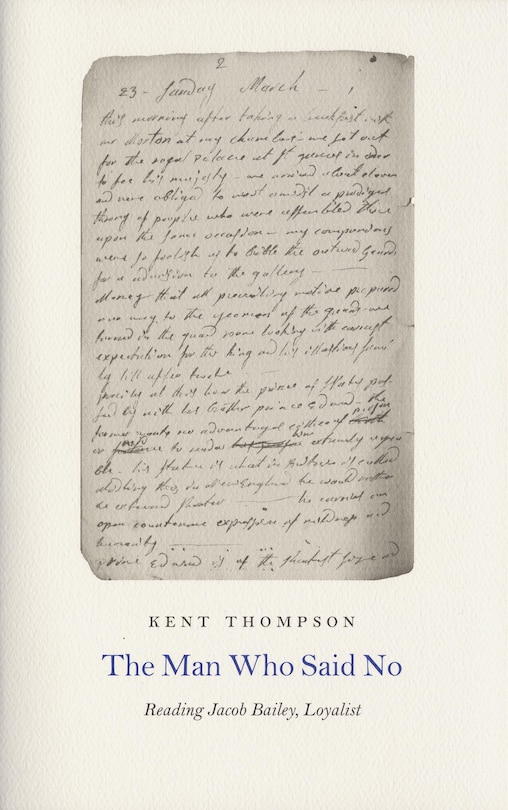 2
23 - Sunday March -
this morning after taking a breakfast with
mr Morton at my chamber - we set out
for the royal palace at St James in order
to see his majesty - we arrived about eleven
and were obliged to wait amidst a prodigious
throng of people who were assembled there
upon the same occasion - my companions
were so foolish as to bribe the outward Guards
for a admission to the gallery -
Money that all prevailing motive prepared
our way to the yeomen of the guards - we
tarried in the guard room looking with earnest
expectation for the king and his illustrious family
by till after twelve
at this hour the prince of Wales pas-
sed by with his brother prince Edward - the
former no advantages either of person
or to render him extremely agree-
able - his stature is what in is called
in New England he would rather
be - he carries an
open countenance expressive of mildness and
humanity
prince Edward is of the and
KENT THOMPSON
The Man Who Said No
Reading Jacob Bailey, Loyalist